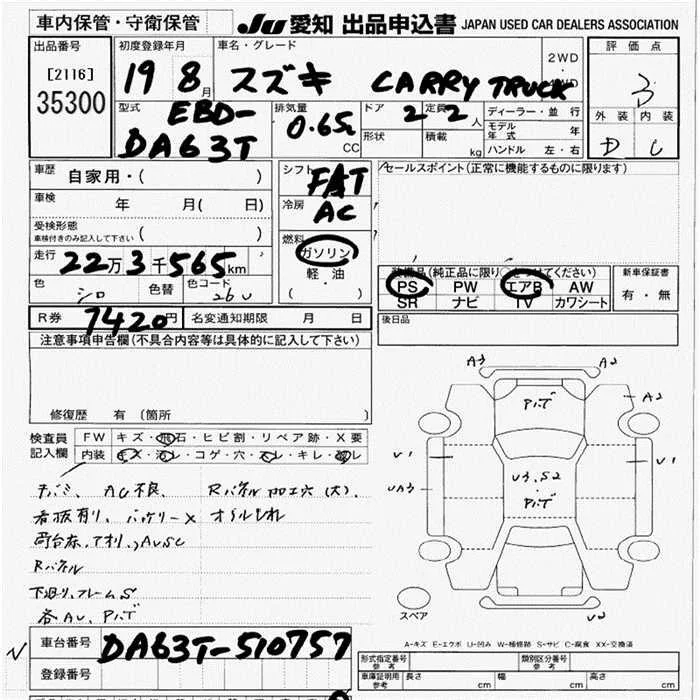 車内保管・守衛保管
JU 愛知 出品申込書 JAPAN USED CAR DEALERS ASSOCIATION
出品番号
[2116]
35300
初度登録年月
19 8月
車名・グレード
スズキ CARRY TRUCK
2WD
4WD
評価点
3
外装 内装
D C
型式
EBD-
DA63T
排気量
0.65L
CC
ドア
2
形状
定員
2人
積載
kg
ディーラー・並行
モデル年式 年
ハンドル 左・右
車歴 自家用・( )
車検 年 月( 日)
受検形態
車検付きのみ記入して下さい ( )
走行 22万3千565km
色 シロ
色替
色コード 26U
シフト FAT
冷房 AC
燃料
ガソリン
軽・油
( )
セールスポイント(正常に機能するものに限ります)
装備品(純正品に限り○をつけてください)
PS PW エアB AW
SR ナビ TV カワシート
新車保証書
有・無
R券 7420円
名変通知期限 月 日
後日品
注意事項申告欄(不具合内容等は具体的に記入して下さい)
修復歴 有 (箇所 )
検査員
記入欄
FW キズ・飛石・ヒビ割・リペア跡・X要
内装 キズ・汚レ・コゲ・穴・スレ・キレ・
AC不良、 Rパネル加工穴(大)、
看板有り、バッテリーX
Rパネル
下廻り、フレームS
各AU、
A3 A2
A2
U1 U1
UA3
U3.S2
U2
スペア
A-キズ E-エクボ U-凹み W-補修跡 S-サビ C-腐食 XX-交換済
車台番号 DA63T-510757
登録番号
形式指定番号
参考
類別区分番号
参考
車庫証明用
参考
長さ cm 幅 cm 高さ cm